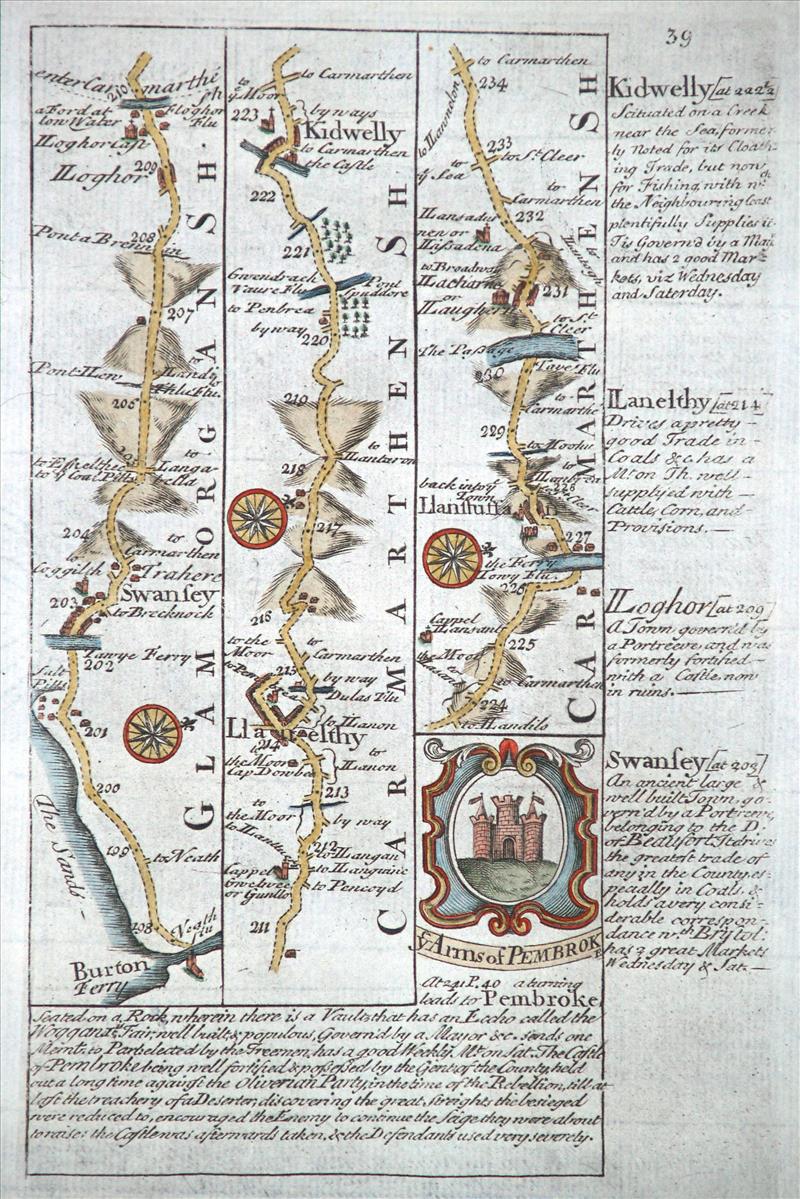 39
enter Carmarthe
210
a Ford at
low Water
Sh
Floghor
Flu
lloghor Cast
209
lloghor
208
Pont a Brennin
207
to
Llandy
Pont Llew
Lhu Flu.
205
Langa-
fella
to ye Coal Pitts
204
to
Carmarthen
to
Coggilsh
Trahere
Swansey
203
to Brecknock
Tawye Ferry
202
Salt
Pitts
201
200
The Sands
199
to Neath
198
Neath
flu
Burton
Ferry
GLAMORGANSH.
to Carmarthen
to
ye Moor
223
by ways
Kidwelly
to Carmarthen
the Castle
222
221
Gwendrack
Vaure Flu
Pont
Spuddore
to Penbrea
by way
220
219
to
Lantaron
218
217
216
to the
Moor
to
Carmarthen
by way
to Pen
215
Dulas Flu
to Llanon
Llanelthy
214
to
the Moor
Cap Dowbe
to
Llanon
213
to
the Moor
by way
to Llantu
212
to Llangan
Cappel
to Llanguine
Gwelwee
or Gunllo
to Pencoyd
211
CARMARTHENSH
to Carmarthen
234
to Llawndon
233
to St Cleer
to
ye Sea
to
Carmarthen
232
Llansadur
nen or
Llassadena
to Broadway
Llacharne
or
Llaughern
231
to St
Cleer
The Passage
Tave Flu
230
to
Carmarthe
229
back into ye
Town
Llanstuffan
227
the Ferry
Towy Flu.
226
Cappel
Llansant
225
the Moor
to Carmarthen
224
to Llandilo
CARMARTHENSH
ye Arms of PEMBROKE
At 241 P. 40 a turning
leads to Pembroke,
Seated on a Rock, wherein there is a Vault that has an Eccho called the
Woggan; ts Fair, well built & populous, Govern'd by a Mayor &c. sends one
Memt. to Parl. elected by the Freemen, has a good Weekly Mt. on Sat. The Castle
of Pembroke being well fortified & possessed by the Gent. of the County, held
out a long time against the Oliverian Party in the time of the Rebellion, till at
last the treachery of a Deserter, discovering the great streights the besieged
were reduced to, encouraged the Enemy to continue the Seige they were about
to raise: the Castle was afterwards taken, & the Defendants used very severely.
Kidwelly [at 222½
Scituated on a Creek
near the Sea, former-
ly Noted for its Cloath-
ing Trade, but now
for Fishing, with wch
the Neighbouring Coast
plentifully Supplies it
Tis Govern'd by a Maior
and has 2 good Mar-
kets, viz Wednesday
and Saterday.
Llanelthy [at 214]
Drives a pretty
good Trade in
Coals & c. has a
Mt. on Th. well
supplyed with
Cattle, Corn, and
Provisions.
Lloghor [at 209]
A Town govern'd by
a Portreeve and was
formerly fortified
with a Castle, now
in ruins.
Swansey [at 203]
An ancient large &
well built Town, go-
vern'd by a Portreeve,
belonging to the D.
of Beaufort. It drives
the greatest trade of
any in the County, es-
pecially in Coals, &
holds a very consi-
derable correspon-
dance wth Bristol:
has 2 great Markets
Wednesday & Sat.